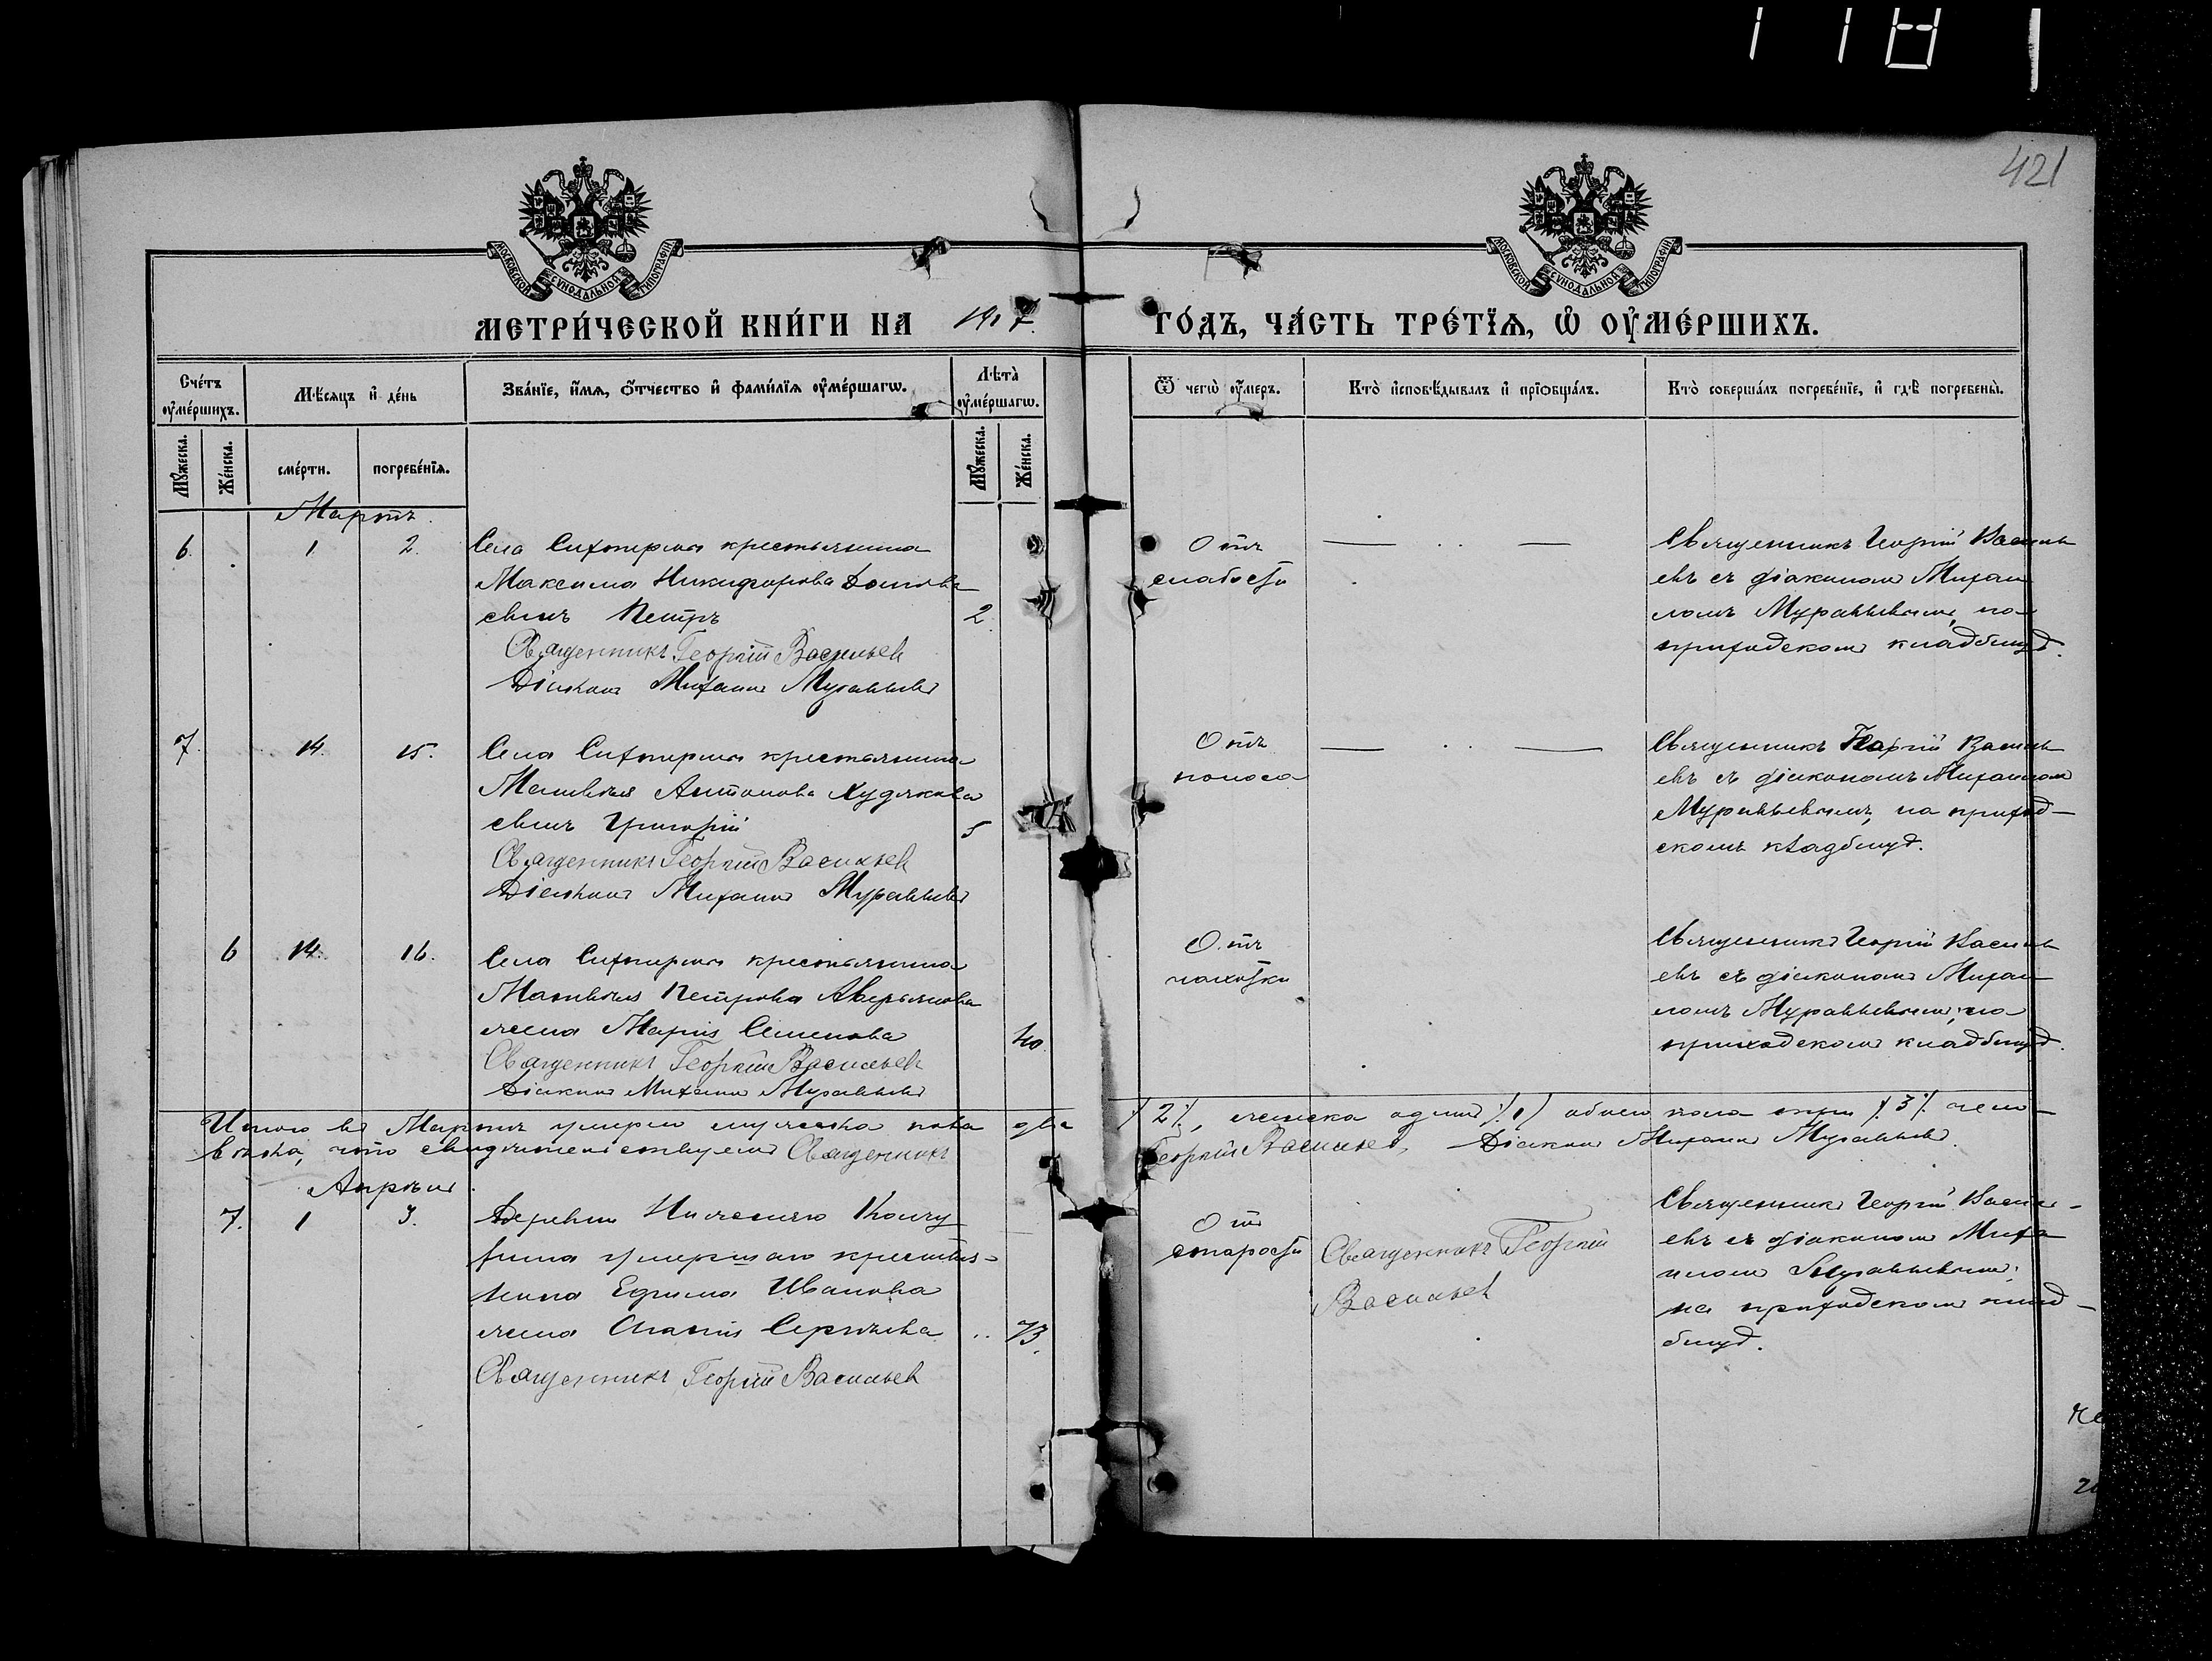 1181
421
МОСКОВСКОЙ СУНОДАЛЬНОЙ ТИПОГРАФІИ
МОСКОВСКОЙ СУНОДАЛЬНОЙ ТИПОГРАФІИ
МЕТРИ́ЧЕСКОЙ КНИ́ГИ НА 1917. ГО́ДЪ, ЧА́СТЬ ТРЕ́ТЇѦ, Ѡ҆ ОУ҆МЕ́РШИХЪ.
Сче́тъ оу҆ме́ршихъ.
Мѣ́сяцъ и҆ де́нь
Зва́нїе, и҆́мѧ, ѻ҆́тчество и҆ фами́лїѧ оу҆ме́ршагѡ.
Лѣта̀ оу҆ме́ршагѡ.
Ѿ чегѡ̀ оу҆́меръ.
Кто̀ и҆сповѣ́дывалъ и҆ прїѡбща́лъ.
Кто̀ соверша́лъ погребе́нїе, и҆ гдѣ̀ погребены̀.
Мꙋ́жеска.
Же́нска.
сме́рти.
погребе́нїѧ.
Мꙋ́жеска.
Же́нска.
Мартъ.
6. 1 2. Села крестьянина
Максима Никифорова
сынъ Петръ 2.
Священникъ Георгій Васильев
Діаконъ Михаилъ Муравьевъ
Отъ
слабости
Священникъ Георгій Василь
евъ съ діакономъ Михаи
ломъ Муравьевымъ, на
приходскомъ кладбищѣ.
7. 14. 15. Села крестьянина
Матвѣя Антонова Худякова
сынъ Григорій 5
Священникъ Георгій Васильев
Діаконъ Михаилъ Муравьевъ
Отъ
поноса
Священникъ Георгій Василь
евъ съ діакономъ Михаиломъ
Муравьевымъ, на приход-
скомъ кладбищѣ.
6 14. 16. Села крестьянина
Матвѣя Петрова Аверьянова
жена Марія Семенова 40
Священникъ Георгій Васильев
Діаконъ Михаилъ Муравьевъ
Отъ
чахотки
Священникъ Георгій Василь
евъ съ діакономъ Михаи
ломъ Муравьевымъ, на
приходскомъ кладбищѣ.
Итого въ Мартѣ умерло мужеска пола два /2/, женска одинъ /1/ обоего пола три /3/ чело-
вѣка, что свидѣтельствуемъ Священникъ Георгій Васильев, Діаконъ Михаилъ Муравьевъ.
Апрѣль.
7. 1 3. Деревни
умершаго крестья-
нина Ефима Иванова
жена Сергѣева 73.
Священникъ Георгій Васильев
Отъ
старости
Священникъ Георгій
Васильев
Священникъ Георгій Василь-
евъ съ діакономъ Миха
иломъ Муравьевымъ,
на приходскомъ клад-
бищѣ.